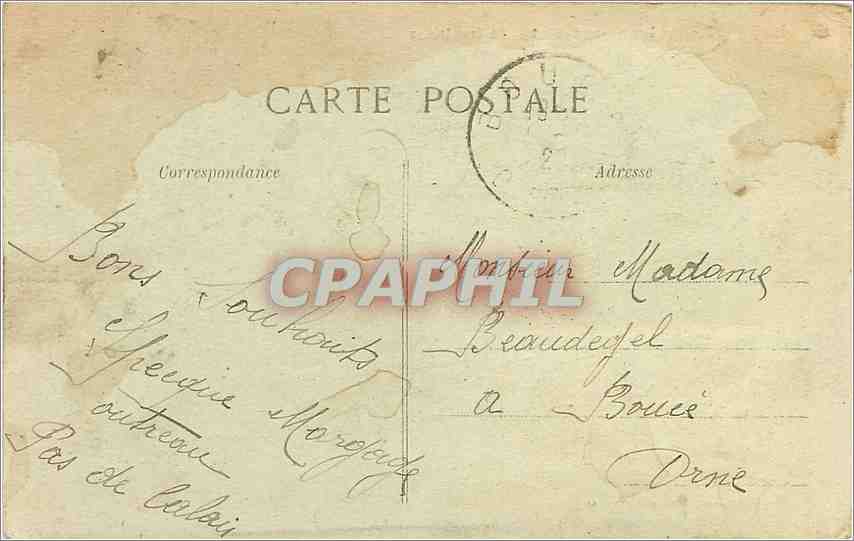 CARTE POSTALE
Correspondance
Adresse
Bons Souhaits
outreau
Pas de Calais
Monsieur Madame
Beaudegel
a Boucé
Orne
CPAPHIL